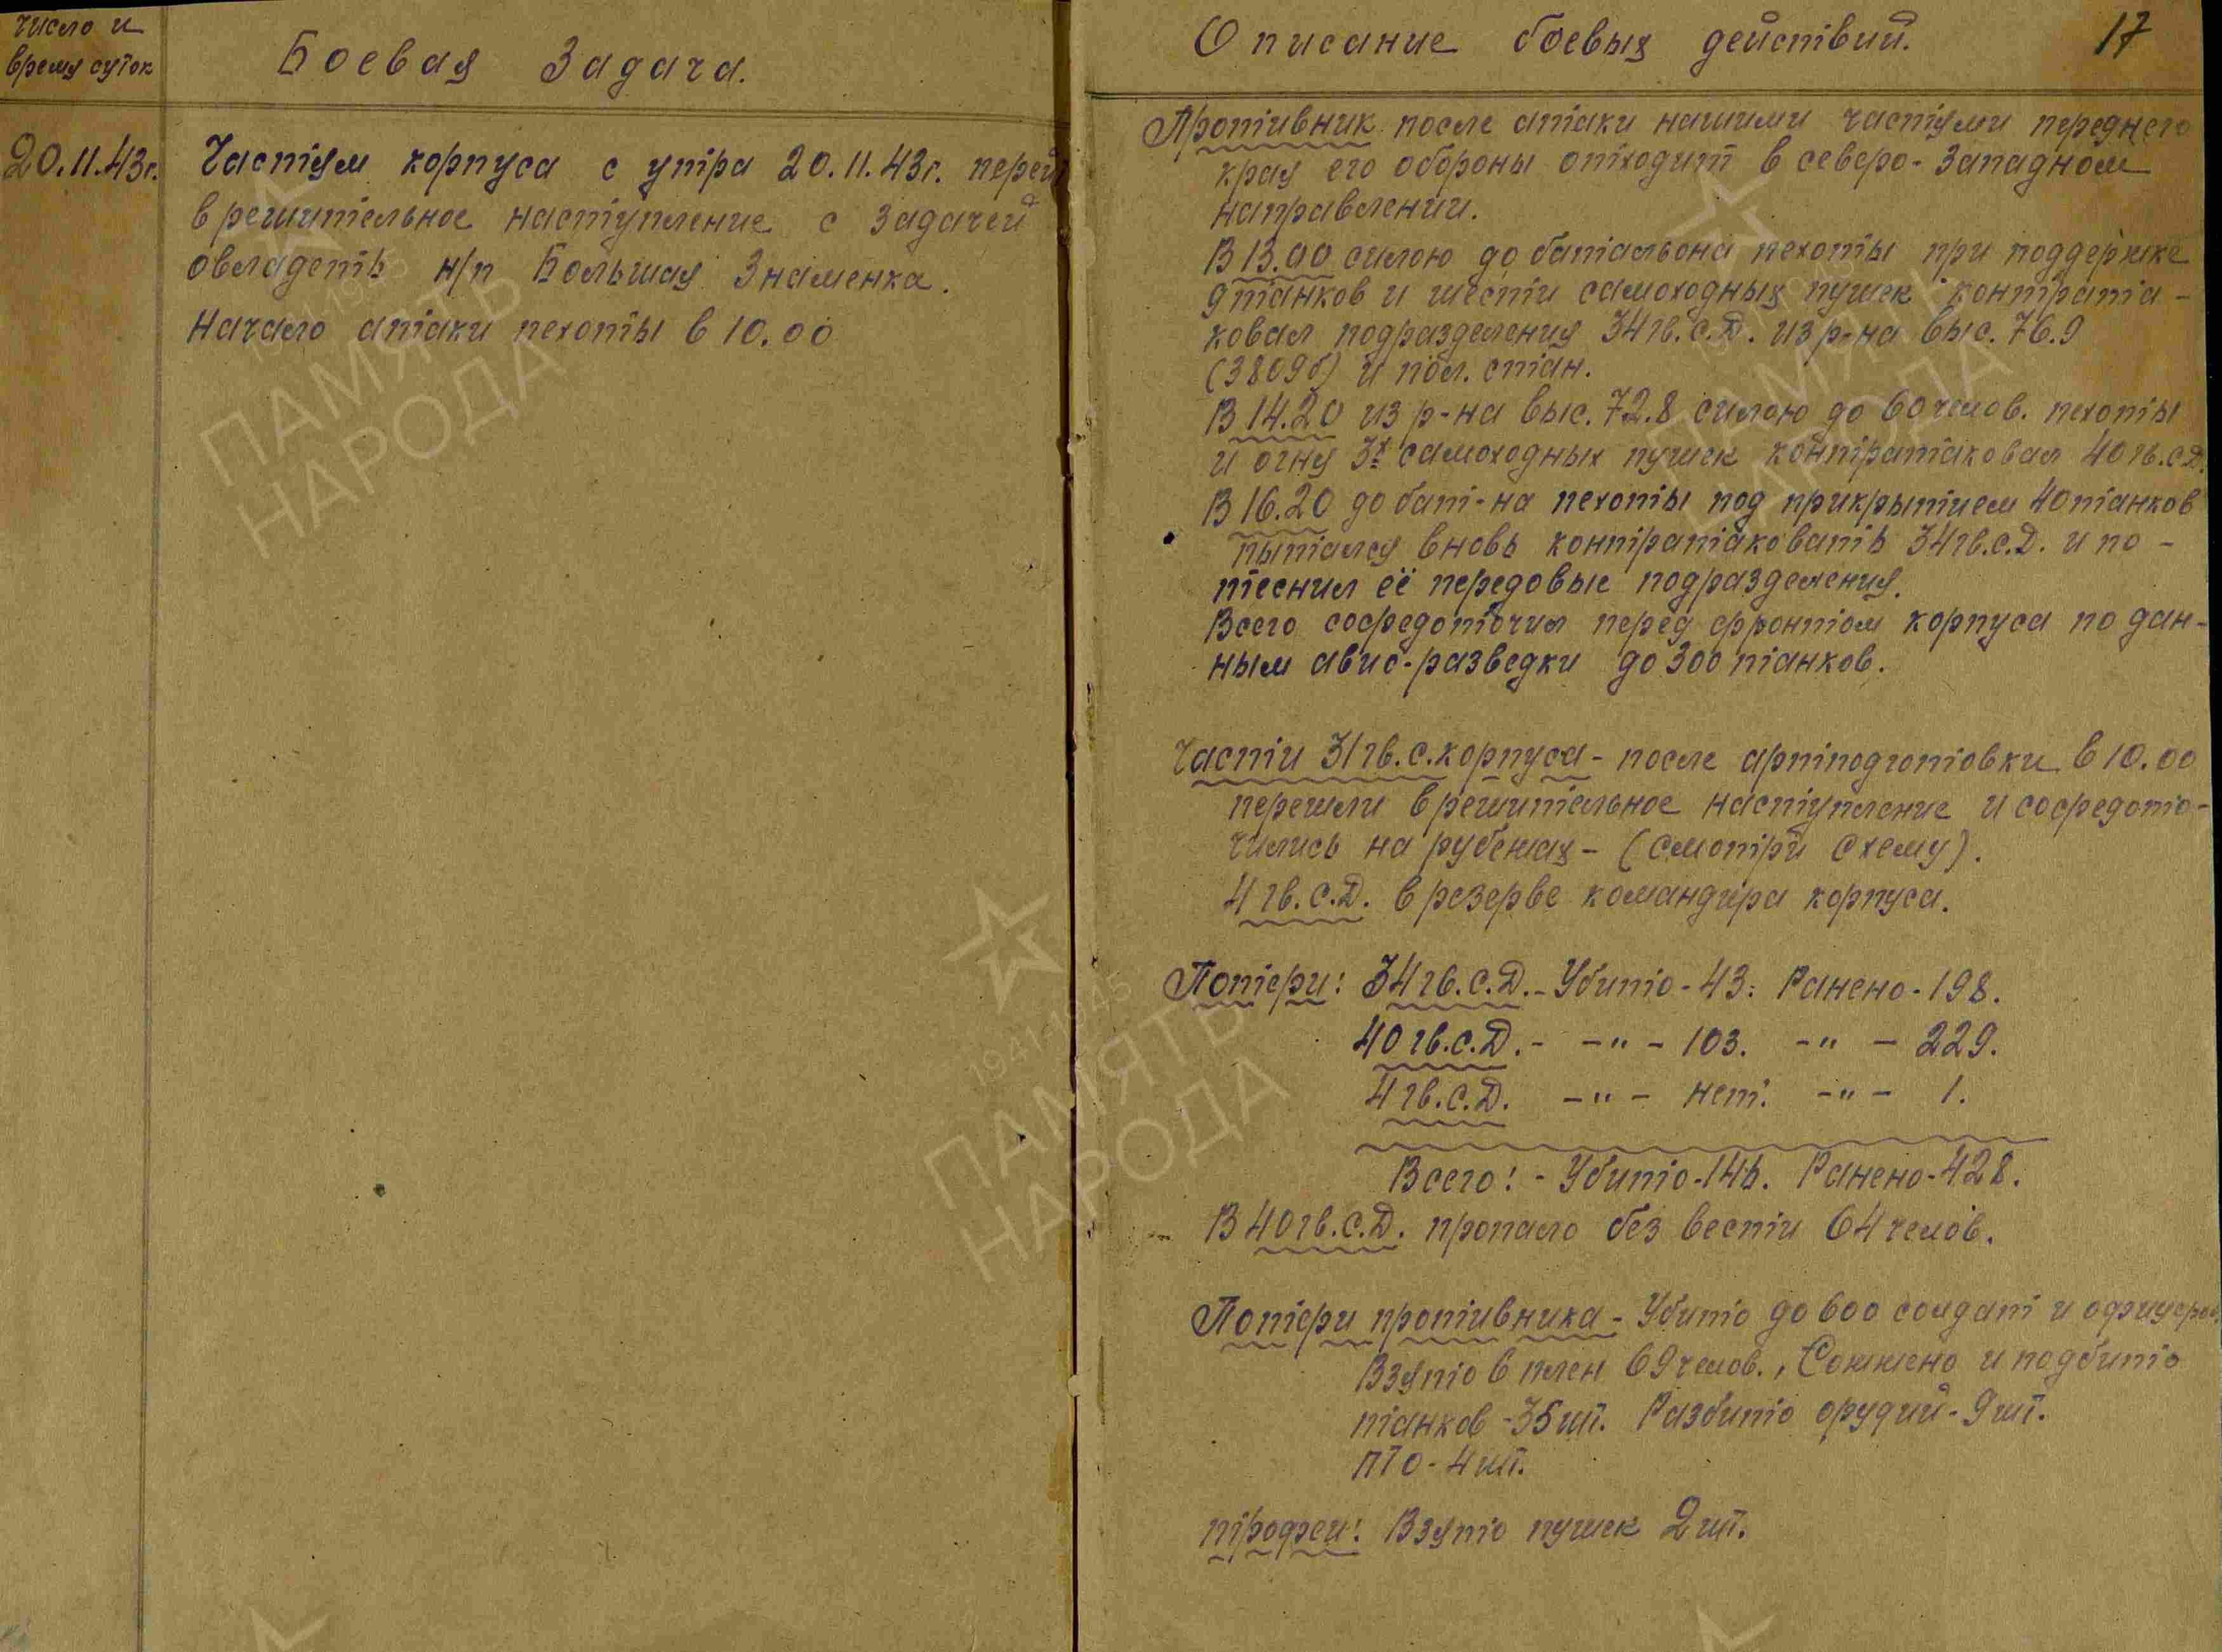 Число и
время суток
Боевая Задача.
20.11.43г.
Частям корпуса с утра 20.11.43г. перей
в решительное наступление с задачей
овладеть н/п Большая Знаменка.
Начало атаки пехоты в 10.00
Описание боевых действий.
17
Противник после атаки нашими частями переднего
края его обороны отходит в северо-западном
направлении.
В 13.00 силою до батальона пехоты при поддержке
9 танков и шести самоходных пушек контрата-
ковал подразделения 34 гв.с.д. из р-на выс. 76.9
(3809б) и пол. стан.
В 14.20 из р-на выс. 72.8 силою до 60 челов. пехоты
и огня 3х самоходных пушек контратаковал 40 гв.с.д.
В 16.20 до бат-на пехоты под прикрытием 40 танков
пытался вновь контратаковать 34 гв.с.д. и по-
теснил её передовые подразделения.
Всего сосредоточил перед фронтом корпуса по дан-
ным авио-разведки до 300 танков.
Части 31 гв.с.корпуса - после артподготовки в 10.00
перешли в решительное наступление и сосредото-
чились на рубежах - (смотри схему).
4 гв.с.д. в резерве командира корпуса.
Потери: 34 гв.с.д. - Убито - 43: Ранено - 198.
40 гв.с.д. - -"- 103. -"- 229.
4 гв.с.д. -"- нет. -"- 1.
Всего: - Убито - 146. Ранено - 428.
В 40 гв.с.д. пропало без вести 64 челов.
Потери противника - Убито до 600 солдат и офицеров.
Взято в плен 69 челов., Сожжено и подбито
танков - 35 шт. Разбито орудий - 9 шт.
ПТО - 4 шт.
трофеи: Взято пушек 2 шт.
1941-1945
ПАМЯТЬ
НАРОДА
1941-1945
ПАМЯТЬ
НАРОДА
1941-1945
ПАМЯТЬ
НАРОДА